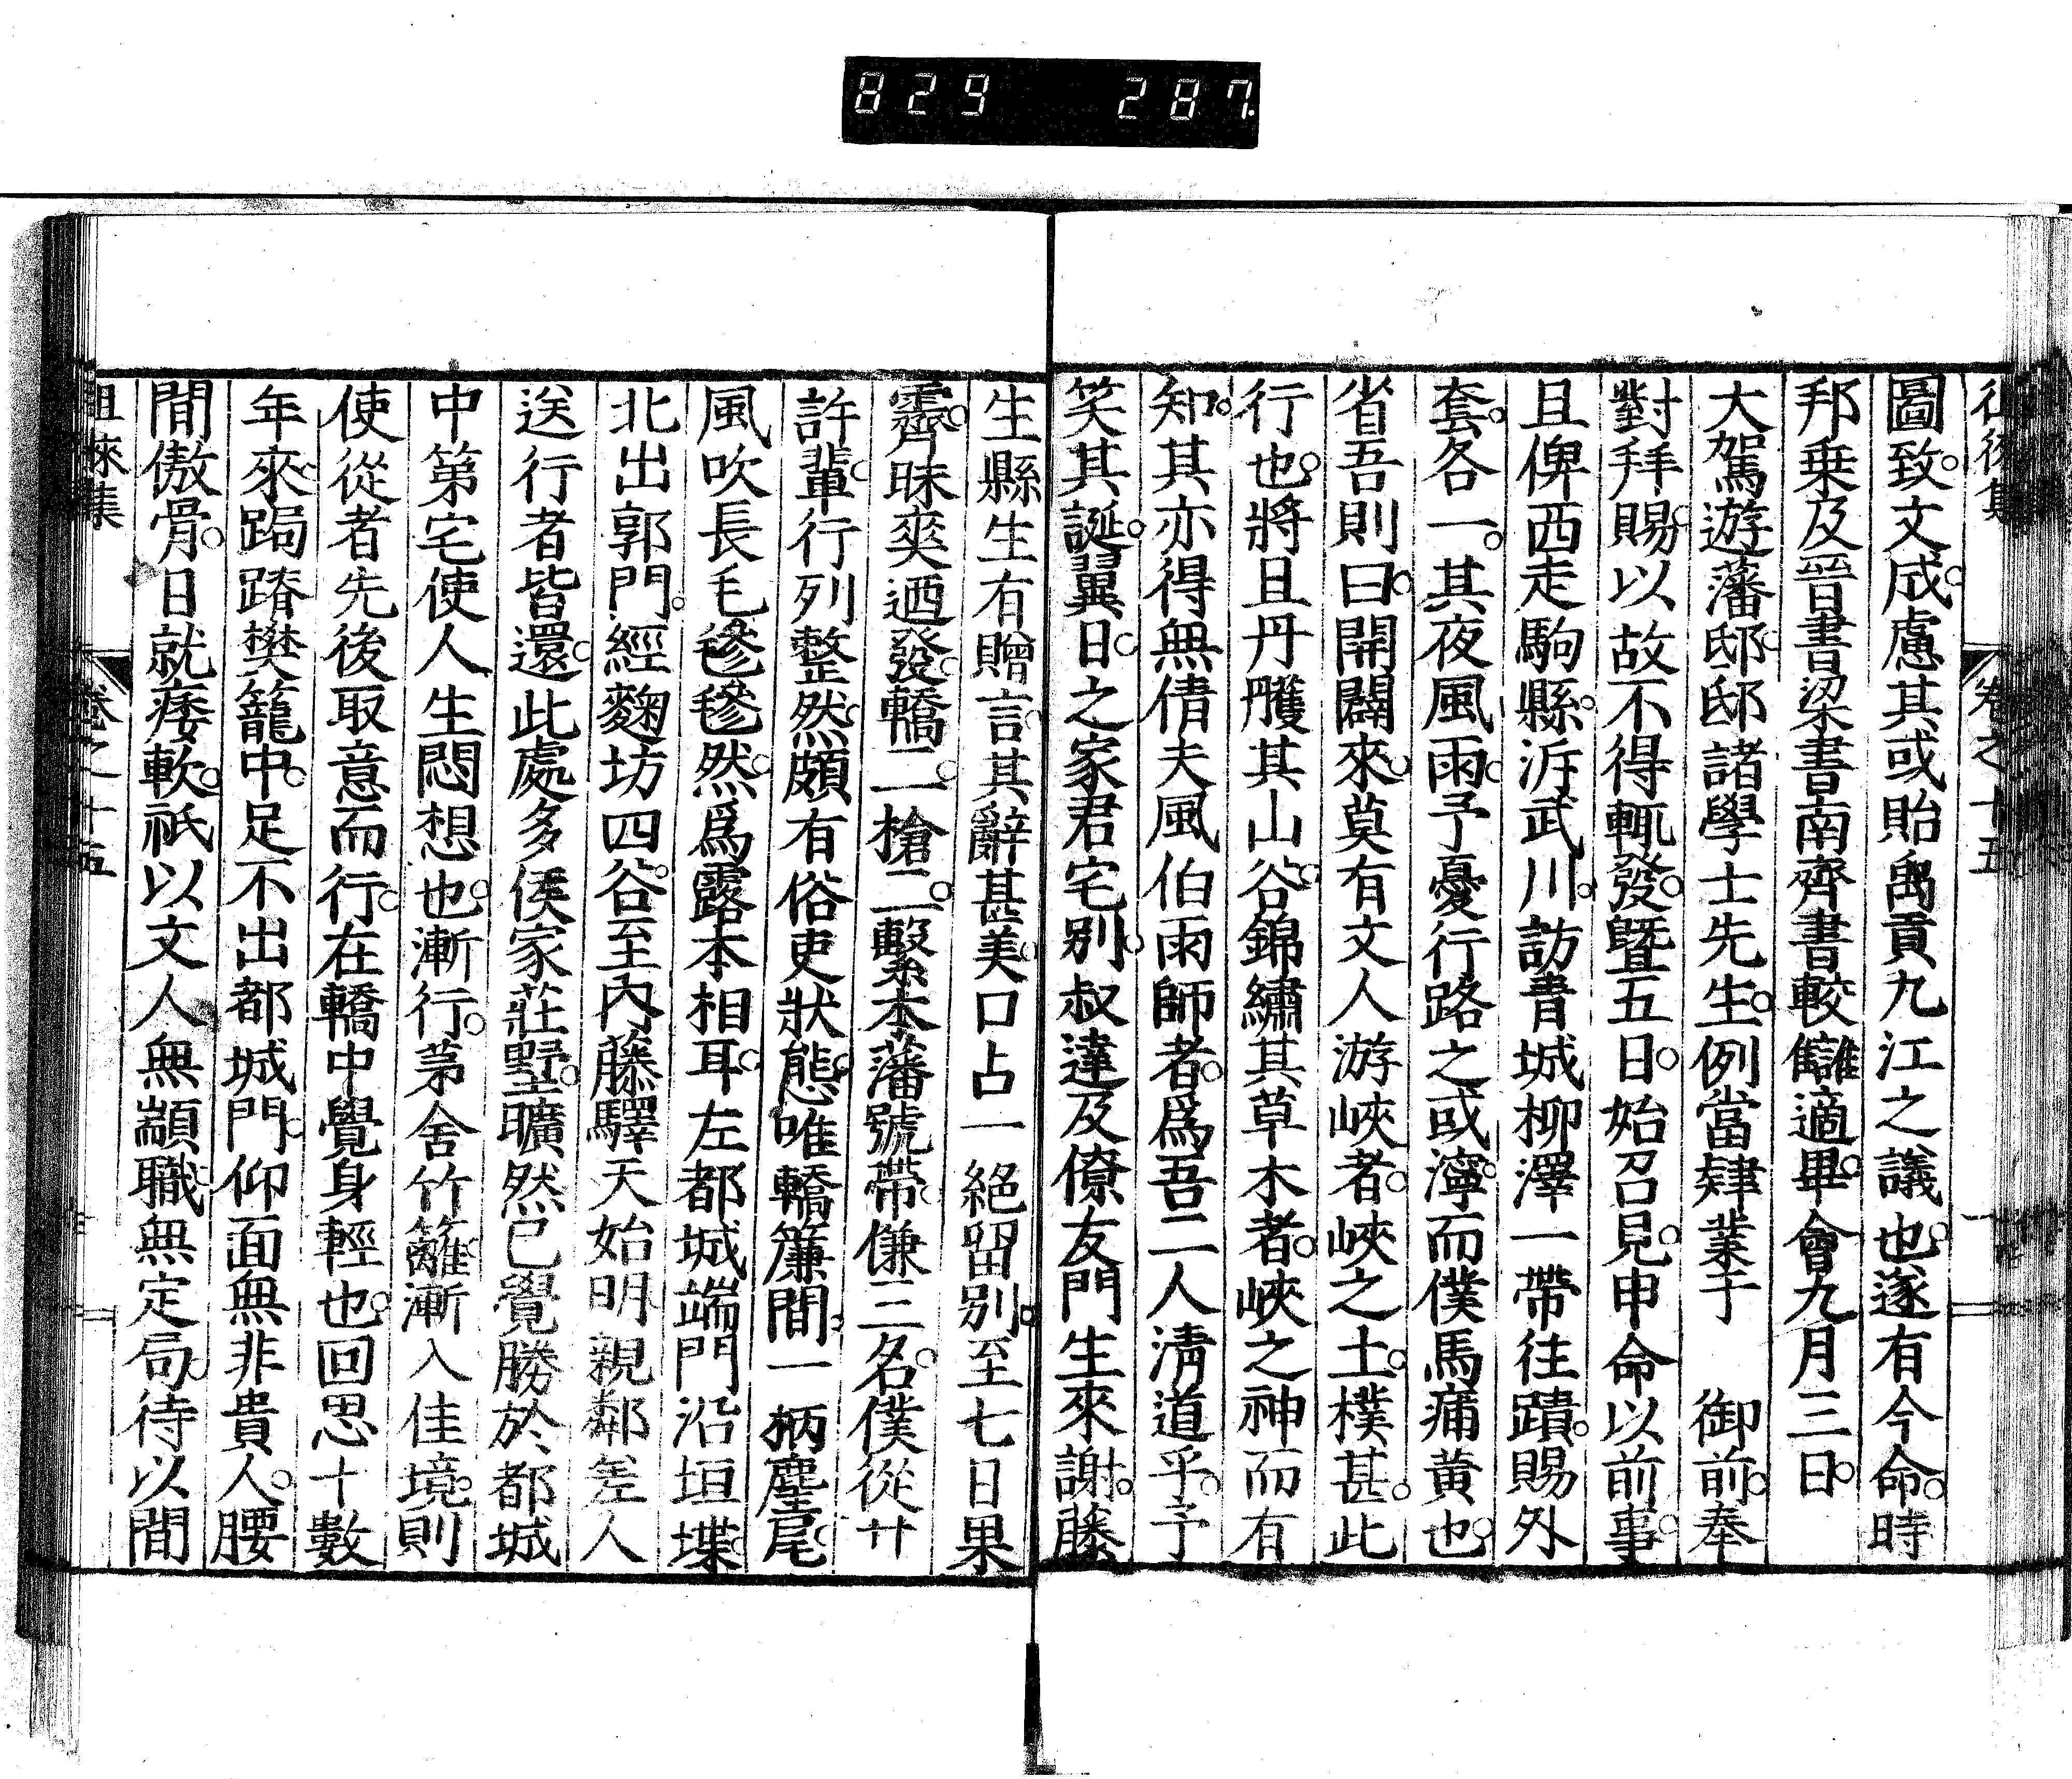 829 287
圖致。文成。慮其或貽禹貢九江之議也。遂有今命。時
邦乗及晉書梁書南齊書較讎適畢。會九月三日。
大駕遊藩邸。邸諸學士先生。例當肄業于 御前。奉
對拜賜。以故不得輒發。曁五日。始召見。申命以前事。
且俾西走駒縣。泝武川。訪青城柳澤一帶往蹟。賜外
套。各一。其夜風雨。予憂行路之或濘。而僕馬痡黄也。
省吾則曰。開闢來。莫有文人游峽者。峽之土。樸甚。此
行也。將且丹雘其山谷。錦繡其草木者。峽之神而有
知。其亦得無倩夫風伯雨師者。爲吾二人淸道乎。予
笑其誕。翼日。之家君宅別。叔達及僚友門生來謝。縢
生縣生有贈言。其辭甚美。口占一絕留別。至七日果
霽。昧爽迺發。轎二。槍二。繫本藩號帶。傔三名。僕從廿
許輩。行列整然。頗有俗吏狀態。唯轎簾間。一柄麈尾。
風吹長毛毶毶然。爲露本相耳。左都城端門沿垣堞。
北出郭門。經麴坊四谷。至內藤驛。天始明。親鄰差人
送行者皆還。此處多侯家莊墅。曠然已覺勝於都城
中第宅使人生悶想也。漸行。茅舍竹籬。漸入佳境。則
使從者先後取意而行。在轎中覺身輕也。回思十數
年來。跼蹐樊籠中。足不出都城門。仰面無非貴人。腰
間傲骨。日就痿軟。祇以文人無顓職。無定局。待以間
徂徠集 卷之十五